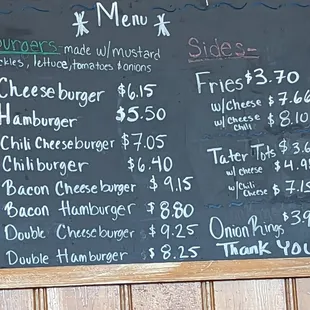 Menu
burgers- made w/mustard
pickles, lettuce, tomatoes & onions
Cheeseburger $6.15
Hamburger $5.50
Chili Cheeseburger $7.05
Chiliburger $6.40
Bacon Cheeseburger $9.15
Bacon Hamburger $8.80
Double Cheeseburger $9.25
Double Hamburger $8.25
Sides-
Fries $3.70
w/cheese $7.66
w/cheese chili $8.10
Tater Tots $3.6
w/ cheese $4.95
w/chili cheese $7.15
Onion Rings $3.9
Thank You